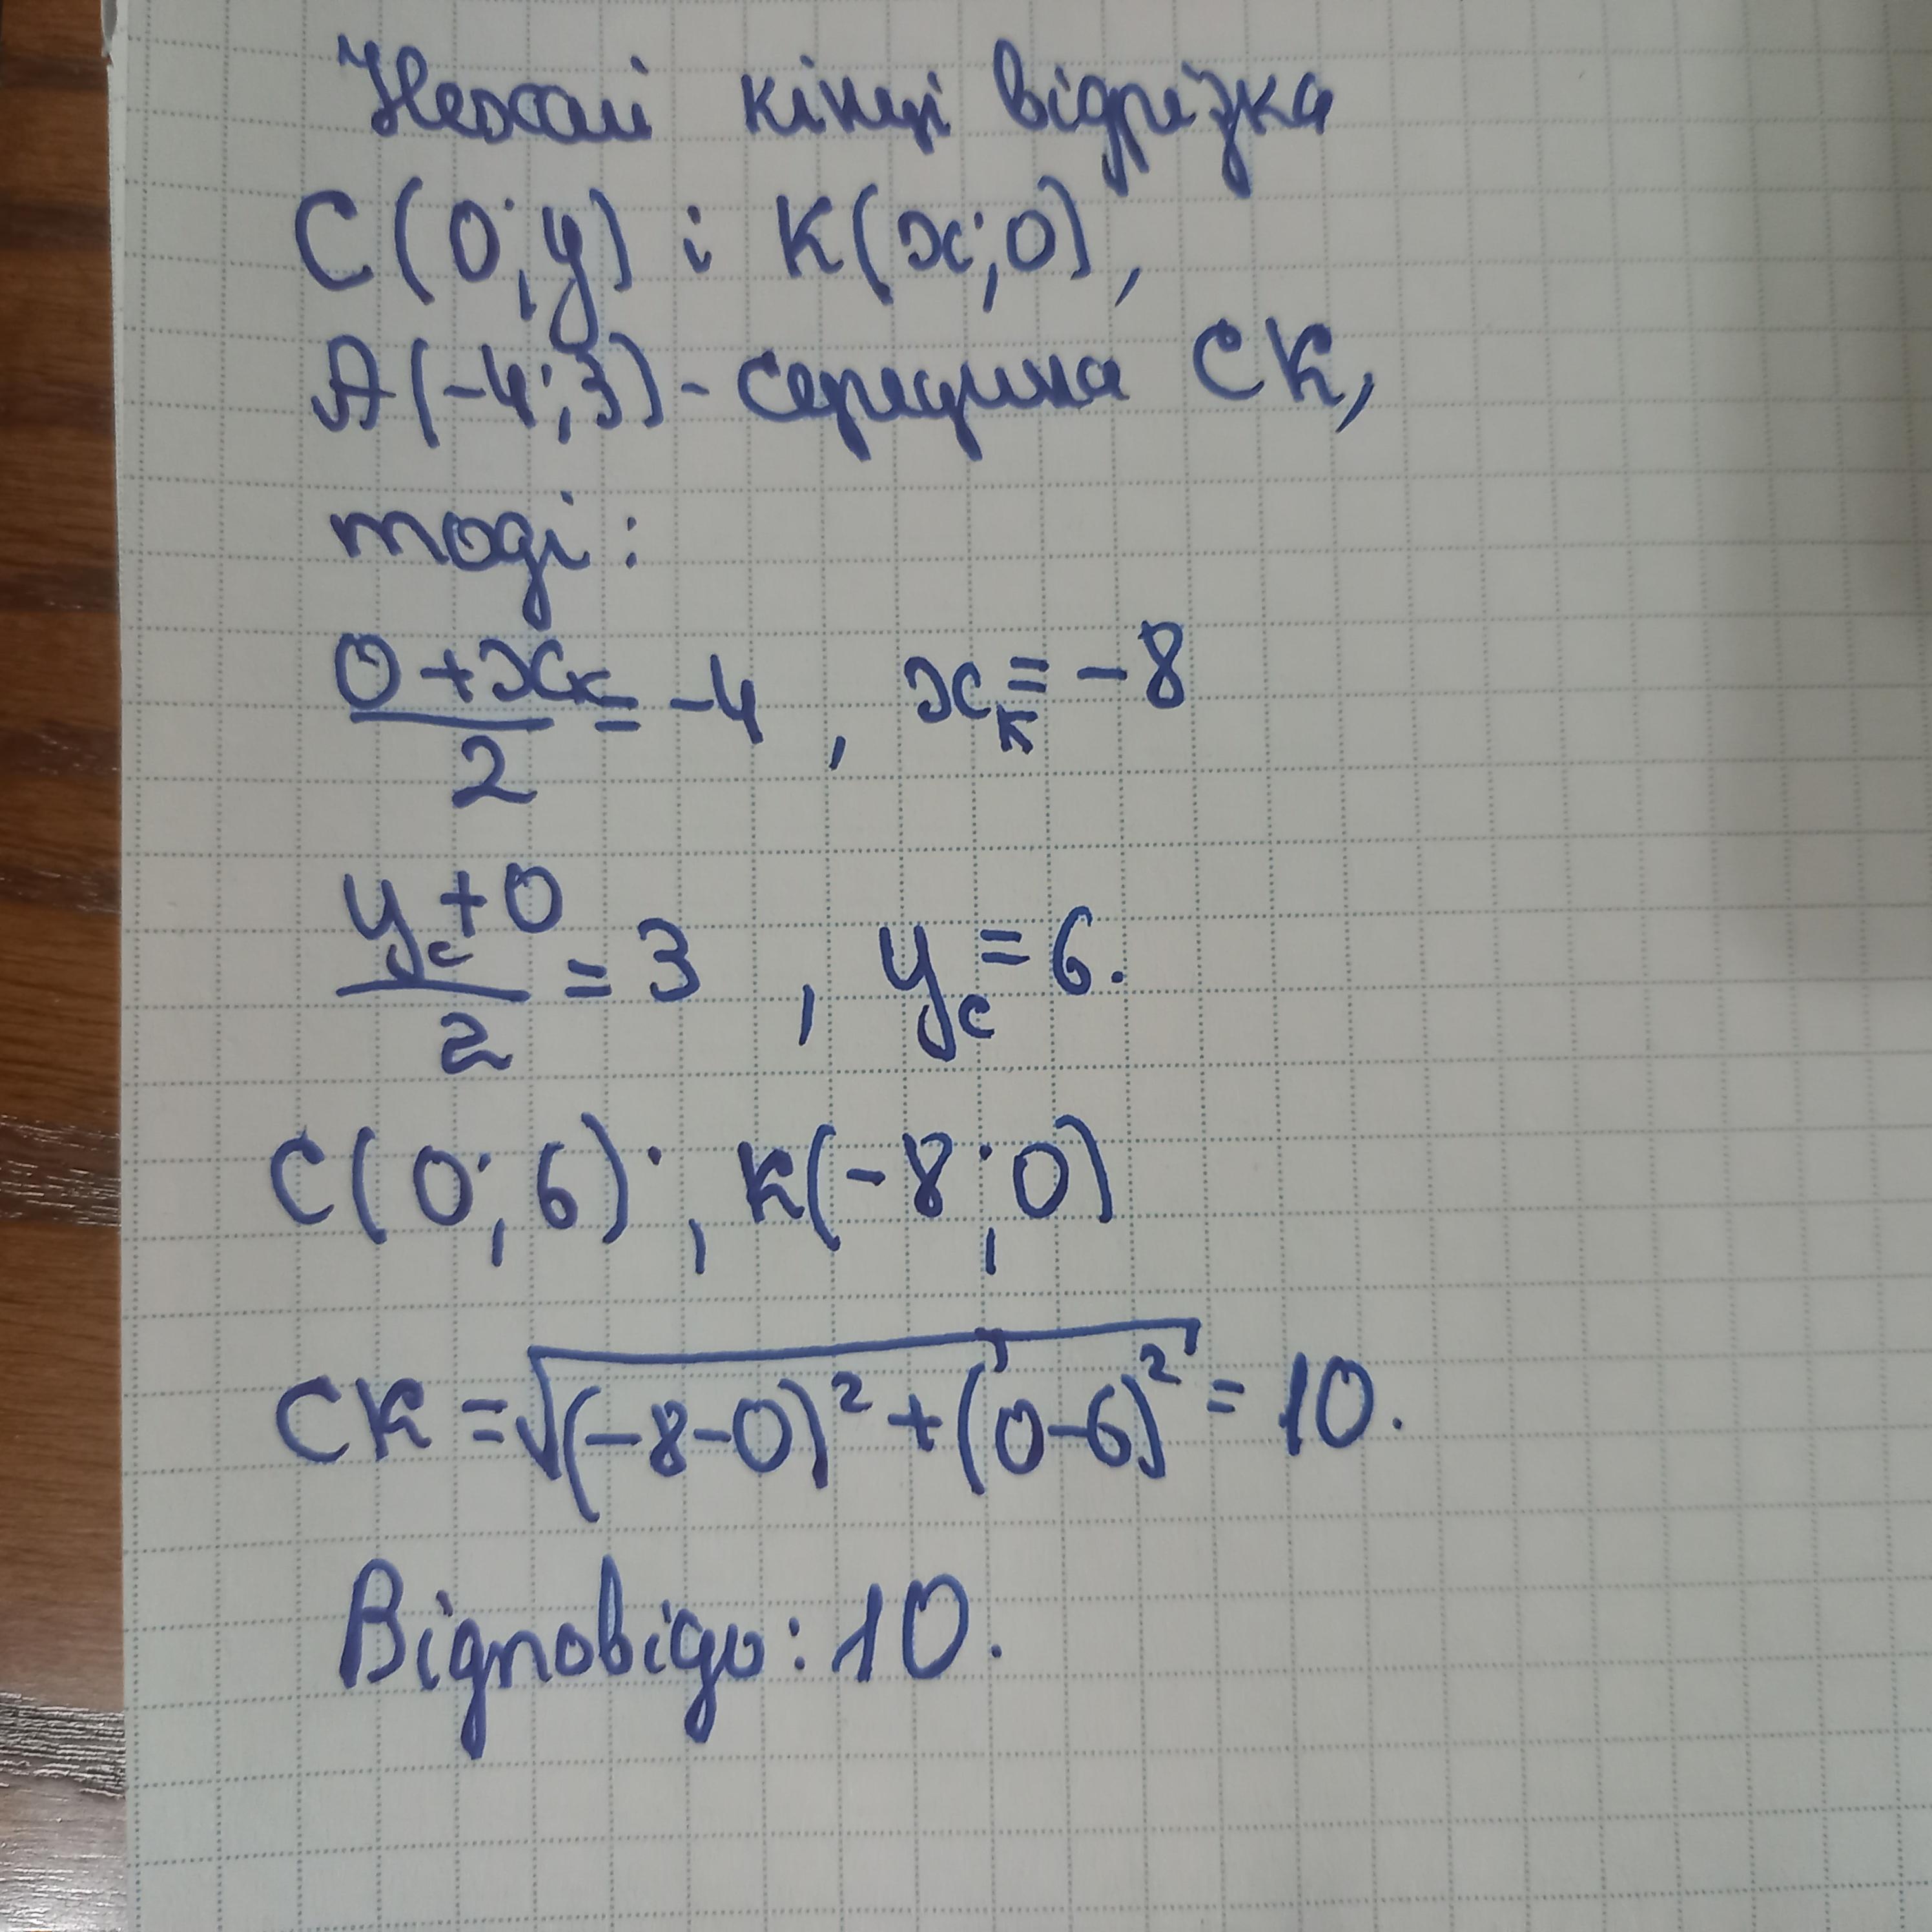 Нехай кінці відрізка
C(0; y) і K(x; 0),
A(-4; 3) - середина CK,
тоді:
(0 + x_K)/2 = -4, x_K = -8
(y_C + 0)/2 = 3, y_C = 6.
C(0; 6); K(-8; 0)
CK = √((-8-0)² + (0-6)²) = 10.
Відповідь: 10.